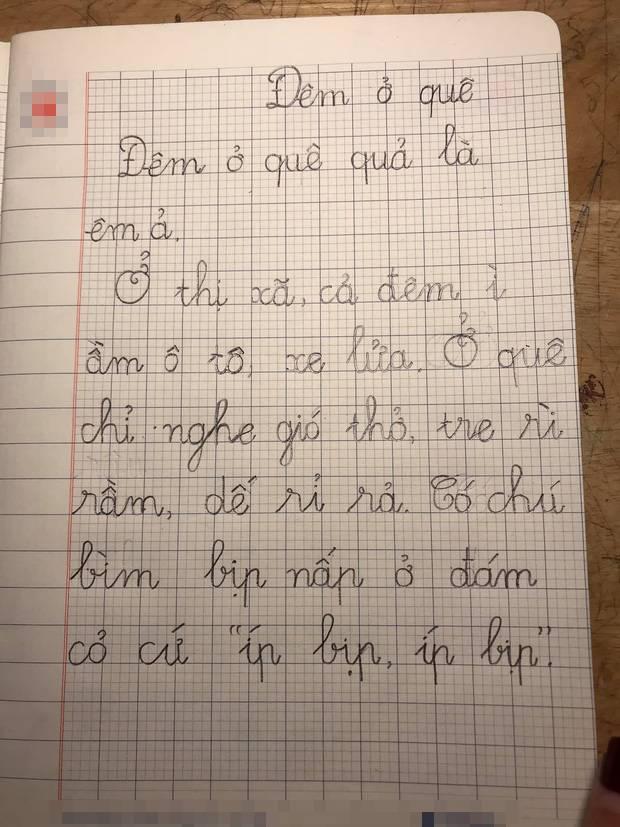 Đêm ở quê
Đêm ở quê quả là
êm ả.
Ở thị xã, cả đêm ì
ầm ô tô, xe lửa. Ở quê
chỉ nghe gió thở, tre rì
rầm, dế rỉ rả. Có chú
bìm bịp nấp ở đám
cỏ cứ "íp bịp, íp bịp".